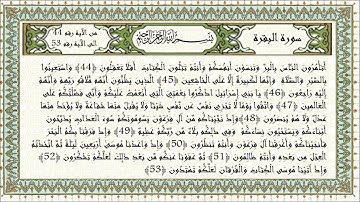 سورة البقرة
بسم الله الرحمن الرحيم
من الآية رقم 44
الى الآية رقم 53
أتأمرون الناس بالبر وتنسون أنفسكم وأنتم تتلون الكتاب أفلا تعقلون ﴿44﴾ واستعينوا
بالصبر والصلاة وإنها لكبيرة إلا على الخاشعين ﴿45﴾ الذين يظنون أنهم ملاقو ربهم وأنهم
إليه راجعون ﴿46﴾ يا بني إسرائيل اذكروا نعمتي التي أنعمت عليكم وأني فضلتكم على
العالمين ﴿47﴾ واتقوا يوما لا تجزي نفس عن نفس شيئا ولا يقبل منها شفاعة ولا يؤخذ منها
عدل ولا هم ينصرون ﴿48﴾ وإذ نجيناكم من آل فرعون يسومونكم سوء العذاب يذبحون
أبناءكم ويستحيون نساءكم وفي ذلكم بلاء من ربكم عظيم ﴿49﴾ وإذ فرقنا بكم البحر
فأنجيناكم وأغرقنا آل فرعون وأنتم تنظرون ﴿50﴾ وإذ واعدنا موسى أربعين ليلة ثم اتخذتم
العجل من بعده وأنتم ظالمون ﴿51﴾ ثم عفونا عنكم من بعد ذلك لعلكم تشكرون ﴿52﴾
وإذ آتينا موسى الكتاب والفرقان لعلكم تهتدون ﴿53﴾